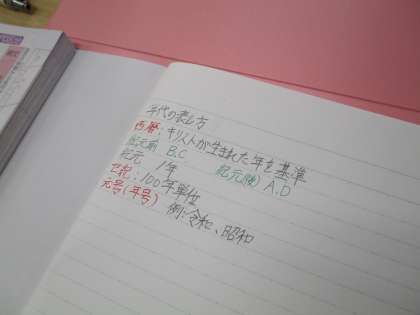 年代の表し方
西暦:キリストが生まれた年を基準
紀元前 B.C 紀元(後) A.D
紀元 1年
世紀:100年単位
元号(年号) 例:令和、昭和